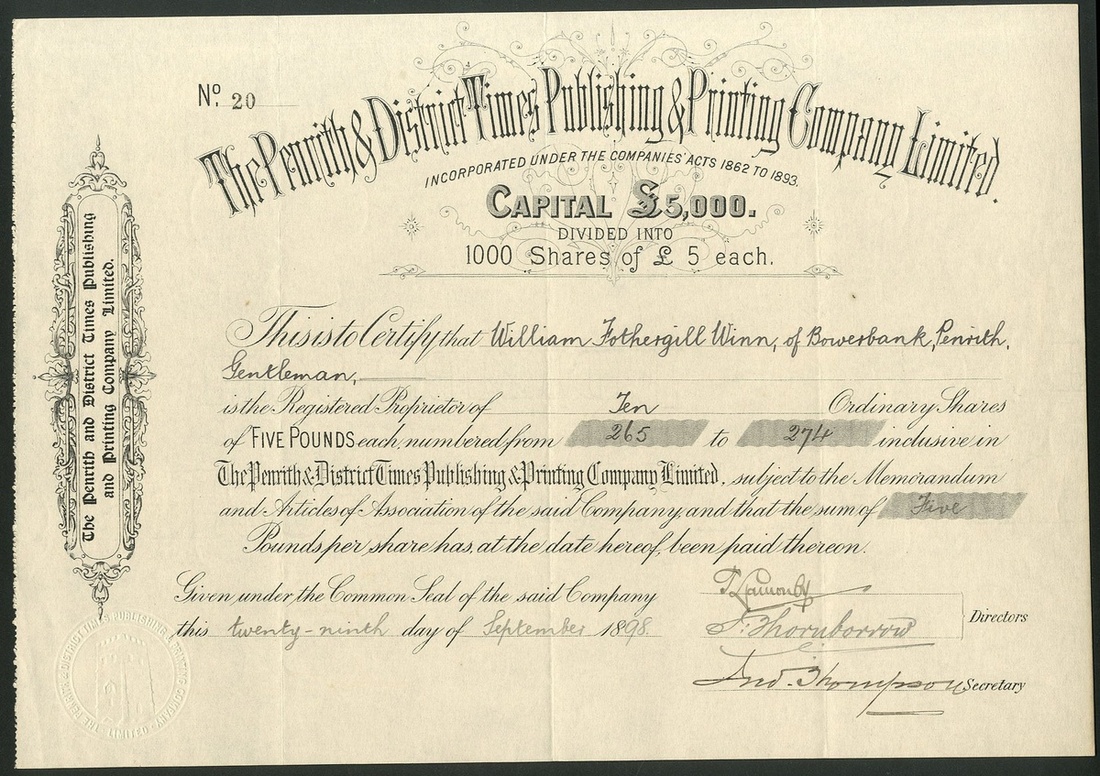 No. 20
The Penrith & District Times Publishing & Printing Company Limited.
INCORPORATED UNDER THE COMPANIES ACTS 1862 TO 1893.
CAPITAL £5,000.
DIVIDED INTO
1000 Shares of £ 5 each.
The Penrith and District Times Publishing
and Printing Company Limited.
This is to Certify that William Fothergill Winn, of Bowerbank, Penrith,
Gentleman,
is the Registered Proprietor of Ten Ordinary Shares
of FIVE POUNDS each, numbered from 265 to 274 inclusive in
The Penrith & District Times Publishing & Printing Company Limited, subject to the Memorandum
and Articles of Association of the said Company, and that the sum of Five
Pounds per share has, at the date hereof, been paid thereon.
Given under the Common Seal of the said Company
this twenty-ninth day of September 1898.
F. Thornborrow
Directors
Jno. Thompson Secretary
THE PENRITH & DISTRICT TIMES PUBLISHING & PRINTING COMPANY LIMITED